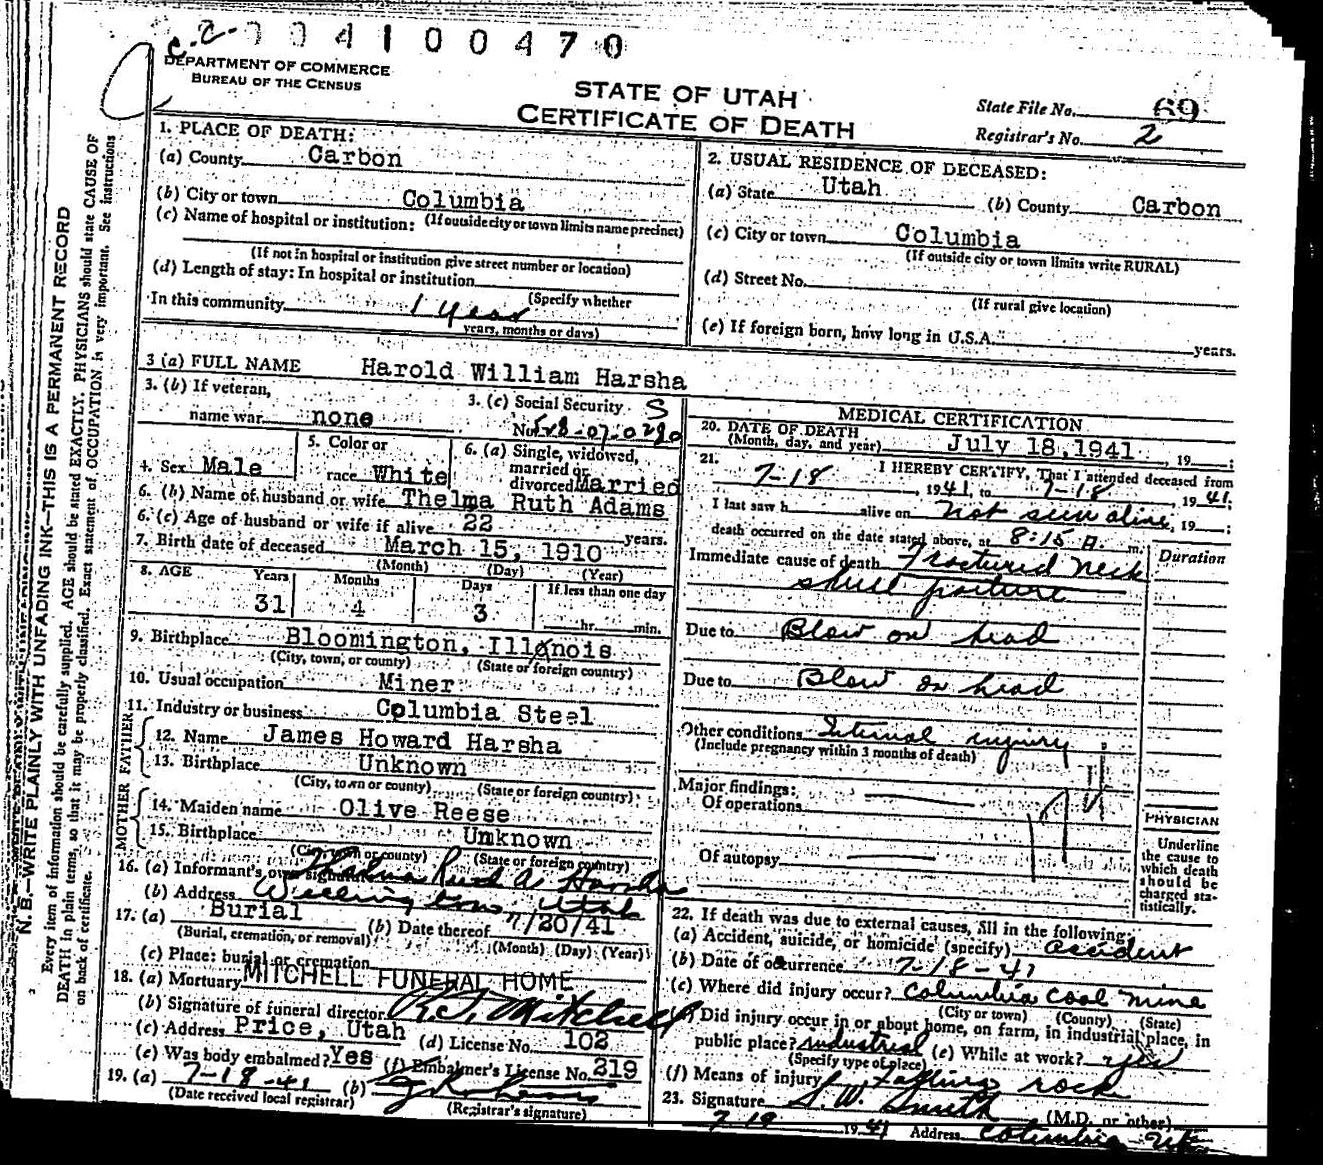 C.C. 0041 00470
DEPARTMENT OF COMMERCE
BUREAU OF THE CENSUS
STATE OF UTAH
CERTIFICATE OF DEATH
State File No. 69
Registrar's No. 2
N. B.—WRITE PLAINLY WITH UNFADING INK—THIS IS A PERMANENT RECORD
Every item of information should be carefully supplied. AGE should be stated EXACTLY. PHYSICIANS should state CAUSE OF
DEATH in plain terms, so that it may be properly classified. Exact statement of OCCUPATION is very important. See instructions
on back of certificate.
1. PLACE OF DEATH:
(a) County Carbon
(b) City or town Columbia
(If outside city or town limits name precinct)
(c) Name of hospital or institution:
(If not in hospital or institution give street number or location)
(d) Length of stay: In hospital or institution
(Specify whether
In this community 1 year
years, months or days)
2. USUAL RESIDENCE OF DECEASED:
(a) State Utah (b) County Carbon
(c) City or town Columbia
(If outside city or town limits write RURAL)
(d) Street No.
(If rural give location)
(e) If foreign born, how long in U.S.A. years.
3 (a) FULL NAME Harold William Harsha
3. (b) If veteran,
name war none
3. (c) Social Security S
No.
4. Sex Male
5. Color or
race White
6. (a) Single, widowed,
married or
divorced Married
6. (b) Name of husband or wife Thelma Ruth Adams
6. (c) Age of husband or wife if alive 22 years.
7. Birth date of deceased March 15, 1910
(Month) (Day) (Year)
8. AGE Years Months Days If less than one day
31 4 3 hr. min.
9. Birthplace Bloomington, Illinois
(City, town, or county) (State or foreign country)
10. Usual occupation Miner
11. Industry or business Columbia Steel
FATHER
12. Name James Howard Harsha
13. Birthplace Unknown
(City, town or county) (State or foreign country)
MOTHER
14. Maiden name Olive Reese
15. Birthplace Unknown
(City, town or county) (State or foreign country)
16. (a) Informant's own signature Thelma Ruth A Harsha
(b) Address Wellington, Utah
17. (a) Burial (b) Date thereof 7/20/41
(Burial, cremation, or removal) (Month) (Day) (Year)
(c) Place: burial or cremation
18. (a) Mortuary MITCHELL FUNERAL HOME
(b) Signature of funeral director Mitchell
(c) Address Price, Utah (d) License No. 102
(e) Was body embalmed? Yes (f) Embalmer's License No. 319
19. (a) 7-18-41 (b)
(Date received local registrar) (Registrar's signature)
MEDICAL CERTIFICATION
20. DATE OF DEATH
(Month, day, and year) July 18, 1941, 19
21. I HEREBY CERTIFY, That I attended deceased from
7-18, 1941, to 7-18, 1941;
I last saw h alive on Not seen alive, 19 ;
death occurred on the date stated above, at 8:15 A. m.
Duration
Immediate cause of death Fractured neck
skull
Due to Blow on head
Due to Blow on head
Other conditions Internal injury
(Include pregnancy within 3 months of death)
Major findings:
Of operations
Of autopsy
PHYSICIAN
Underline
the cause to
which death
should be
charged sta-
tistically.
22. If death was due to external causes, fill in the following:
(a) Accident, suicide, or homicide (specify) accident
(b) Date of occurrence 7-18-41
(c) Where did injury occur? Columbia Coal mine
(City or town) (County) (State)
Did injury occur in or about home, on farm, in industrial place, in
public place? industrial (e) While at work? yes
(Specify type of place)
(f) Means of injury Falling rock
23. Signature S. W. Smith (M.D. or other)
7 19 1941 Address Columbia Utah